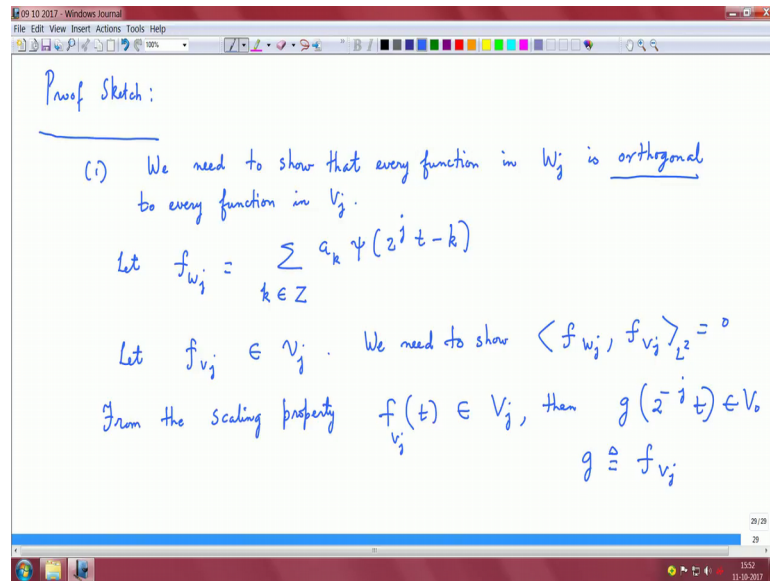 09 10 2017 - Windows Journal
File Edit View Insert Actions Tools Help
100%
B I
Proof Sketch:
(i) We need to show that every function in W_j is orthogonal
to every function in V_j.
Let f_{W_j} = Σ_{k ∈ Z} a_k ψ(2^j t - k)
Let f_{V_j} ∈ V_j. We need to show ⟨f_{W_j}, f_{V_j}⟩_{L^2} = 0
From the scaling property f_{V_j}(t) ∈ V_j, then g(2^{-j} t) ∈ V_0
g ≜ f_{V_j}
29/29
29
15:52
11-10-2017